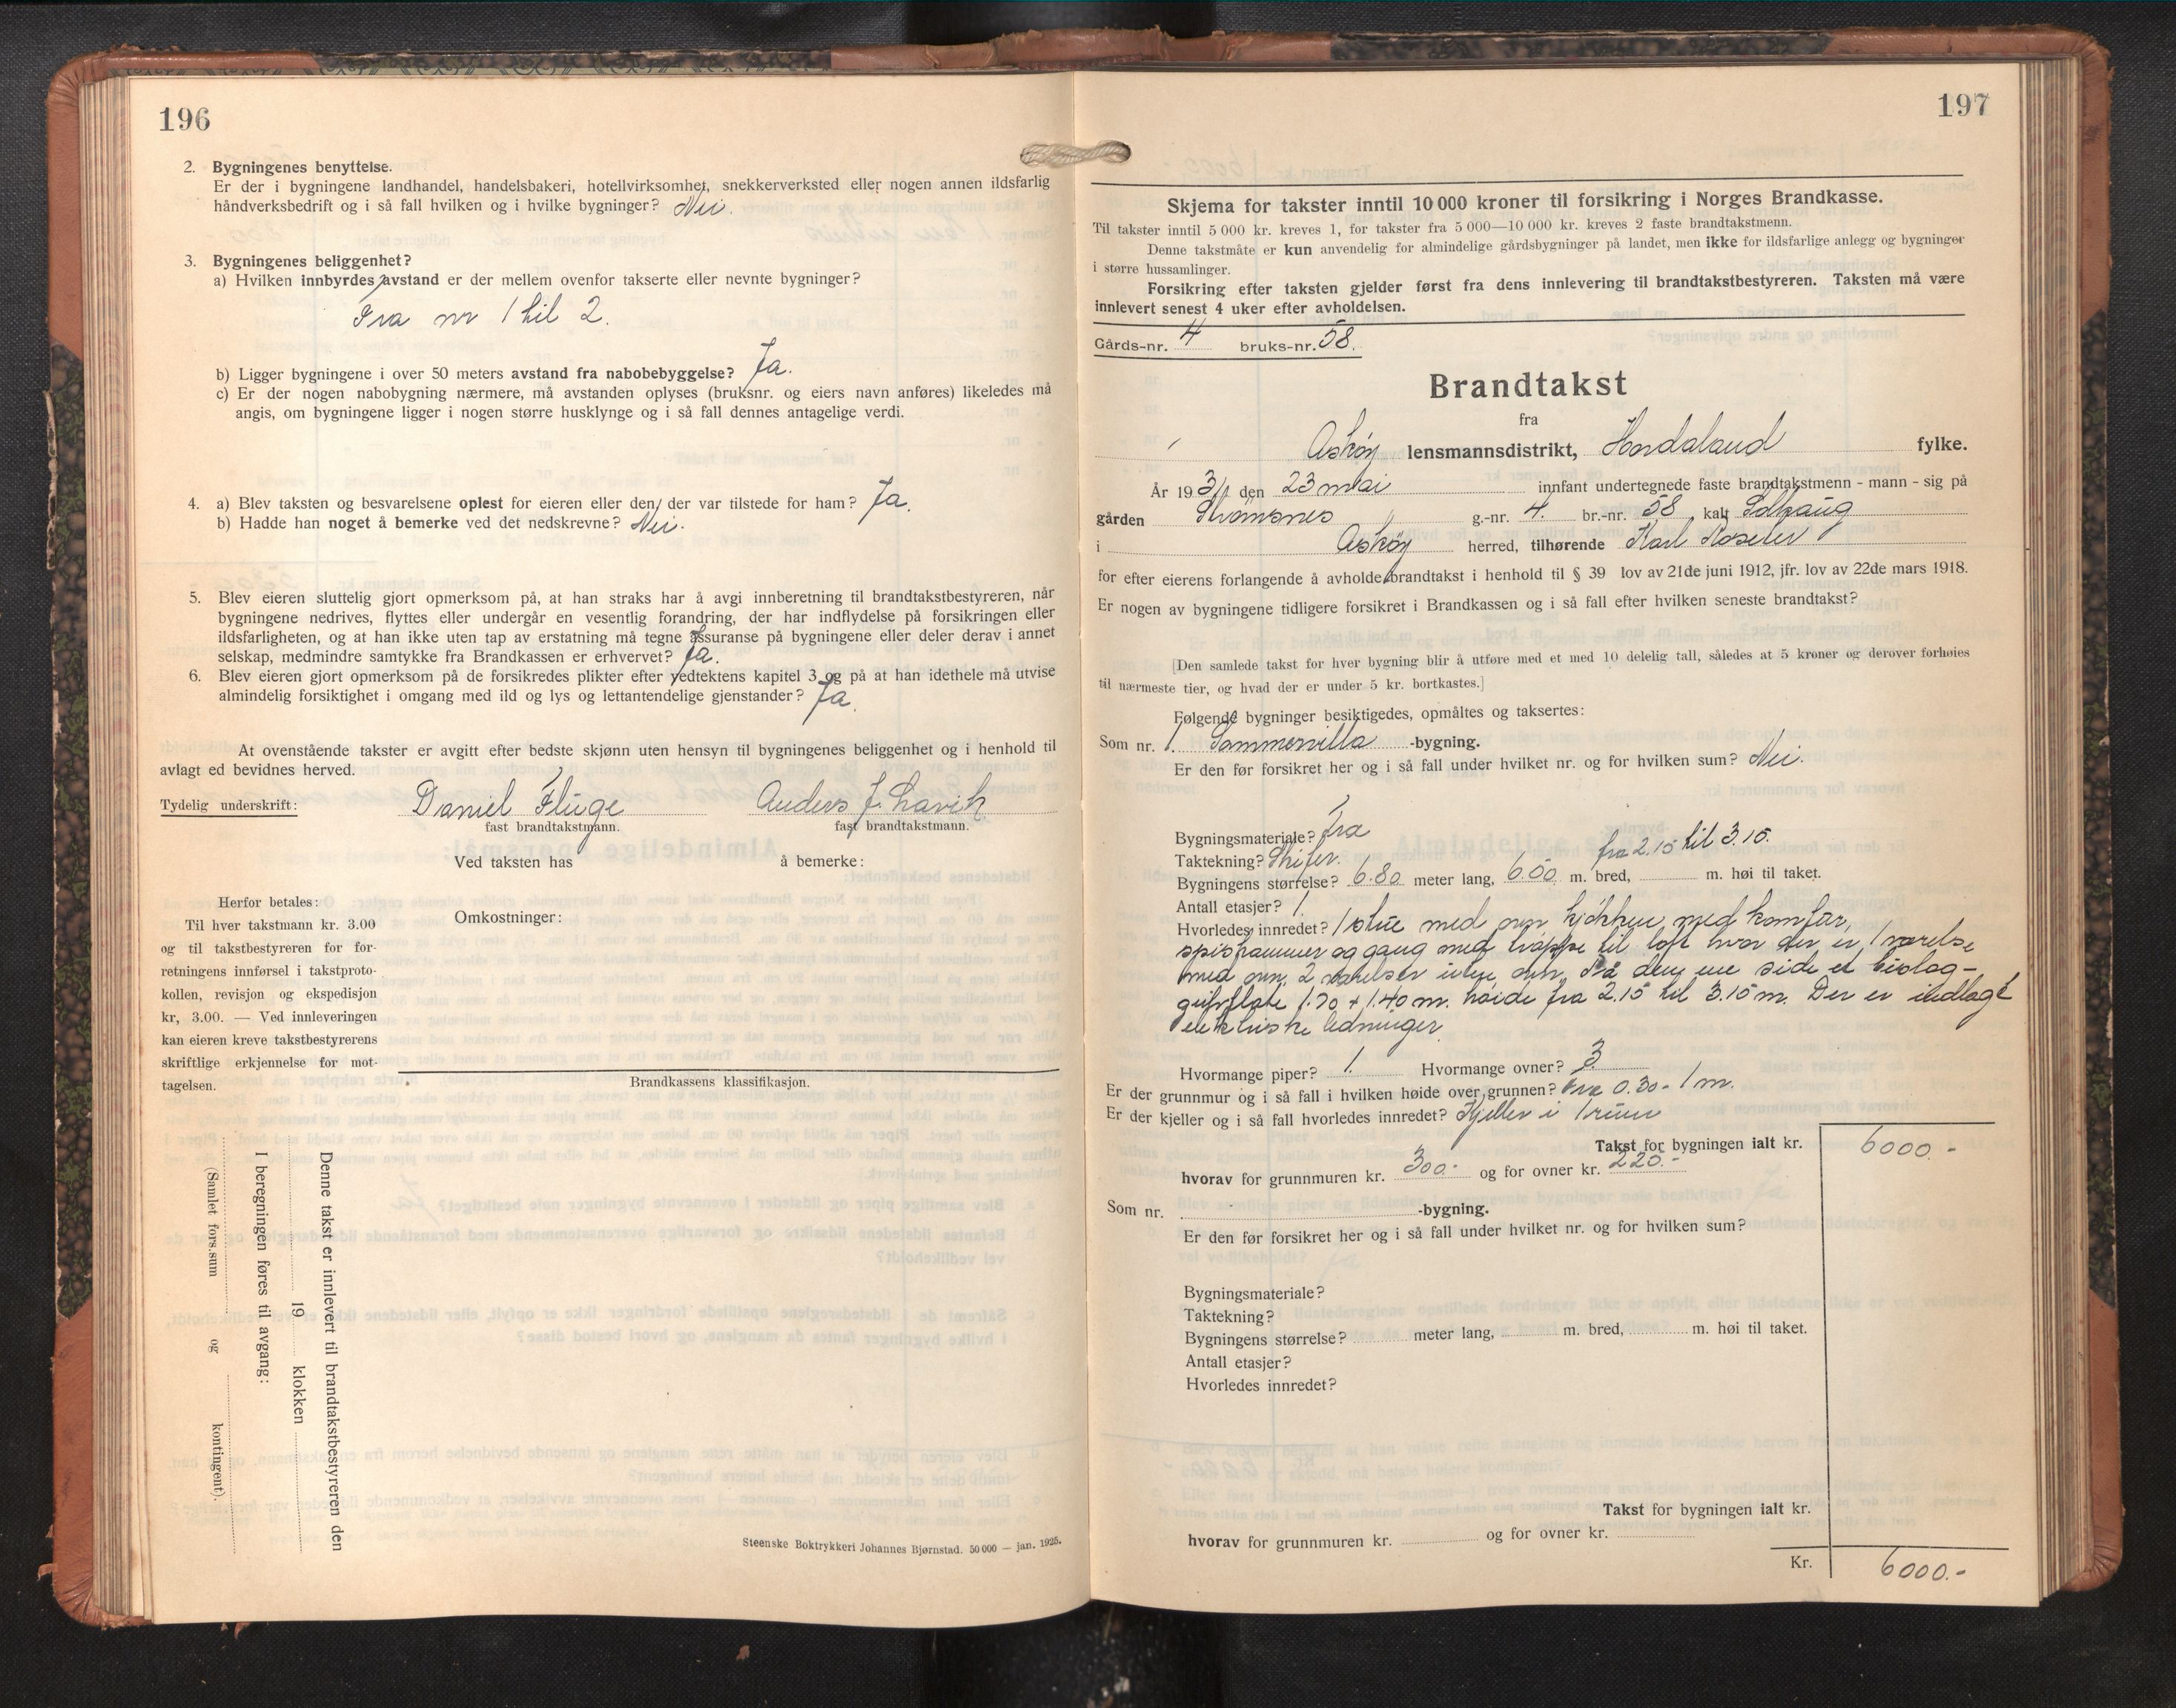 196
2. Bygningenes benyttelse.
Er der i bygningene landhandel, handelsbakeri, hotellvirksomhet, snekkerverksted eller nogen annen ildsfarlig
håndverksbedrift og i så fall hvilken og i hvilke bygninger? Nei.
3. Bygningenes beliggenhet?
a) Hvilken innbyrdes avstand er der mellem ovenfor takserte eller nevnte bygninger?
Fra nr 1 til 2.
b) Ligger bygningene i over 50 meters avstand fra nabobebyggelse? Ja.
c) Er der nogen nabobygning nærmere, må avstanden oplyses (bruksnr. og eiers navn anføres) likeledes må
angis, om bygningene ligger i nogen større husklynge og i så fall dennes antagelige verdi.
4. a) Blev taksten og besvarelsene oplest for eieren eller den, der var tilstede for ham? Ja.
b) Hadde han noget å bemerke ved det nedskrevne? Nei.
5. Blev eieren sluttelig gjort opmerksom på, at han straks har å avgi innberetning til brandtakstbestyreren, når
bygningene nedrives, flyttes eller undergår en vesentlig forandring, der har indflydelse på forsikringen eller
ildsfarligheten, og at han ikke uten tap av erstatning må tegne assuranse på bygningene eller deler derav i annet
selskap, medmindre samtykke fra Brandkassen er erhvervet? Ja.
6. Blev eieren gjort opmerksom på de forsikredes plikter efter vedtektens kapitel 3 og på at han idethele må utvise
almindelig forsiktighet i omgang med ild og lys og lettantendelige gjenstander? Ja.
At ovenstående takster er avgitt efter bedste skjønn uten hensyn til bygningenes beliggenhet og i henhold til
avlagt ed bevidnes herved.
Tydelig underskrift: Daniel Fluge Anders J. Lavik
fast brandtakstmann. fast brandtakstmann.
Ved taksten has å bemerke:
Herfor betales:
Til hver takstmann kr. 3.00
og til takstbestyreren for for-
retningens innførsel i takstproto-
kollen, revisjon og ekspedisjon
kr, 3.00. — Ved innleveringen
kan eieren kreve takstbestyrerens
skriftlige erkjennelse for mot-
tagelsen.
Omkostninger:
Brandkassens klassifikasjon.
Denne takst er innlevert til brandtakstbestyreren den
19 klokken
I beregningen føres til avgang:
(Samlet fors.sum og kontingent).
Steenske Boktrykkeri Johannes Bjørnstad. 50 000 — jan. 1925.
197
Skjema for takster inntil 10 000 kroner til forsikring i Norges Brandkasse.
Til takster inntil 5 000 kr. kreves 1, for takster fra 5 000—10 000 kr. kreves 2 faste brandtakstmenn.
Denne takstmåte er kun anvendelig for almindelige gårdsbygninger på landet, men ikke for ildsfarlige anlegg og bygninger
i større hussamlinger.
Forsikring efter taksten gjelder først fra dens innlevering til brandtakstbestyreren. Taksten må være
innlevert senest 4 uker efter avholdelsen.
Gårds-nr. 4 bruks-nr. 58.
Brandtakst
fra
Askøy lensmannsdistrikt, Hordaland fylke.
År 19 31 den 23 mai innfant undertegnede faste brandtakstmenn - mann - sig på
gården Strømsnes g.-nr. 4. br.-nr. 58 kalt Solhaug
i Askøy herred, tilhørende Karl
for efter eierens forlangende å avholde brandtakst i henhold til § 39 lov av 21de juni 1912, jfr. lov av 22de mars 1918.
Er nogen av bygningene tidligere forsikret i Brandkassen og i så fall efter hvilken seneste brandtakst?
[Den samlede takst for hver bygning blir å utføre med et med 10 delelig tall, således at 5 kroner og derover forhøies
til nærmeste tier, og hvad der er under 5 kr. bortkastes.]
Følgende bygninger besiktigedes, opmåltes og taksertes:
Som nr. 1. Sommervilla -bygning.
Er den før forsikret her og i så fall under hvilket nr. og for hvilken sum? Nei.
Bygningsmateriale? Tra
Taktekning? Skifer. fra 2.15 til 3.15.
Bygningens størrelse? 6.80 meter lang, 6.00 m. bred, m. høi til taket.
Antall etasjer? 1.
Hvorledes innredet? 1 stue med ovn, kjøkken med komfur,
spiskammer og gang med trappe til loft hvor der er 1 værelse
med ovn, 2 værelser uten ovn. På den ene side et bislag-
gulvflate 1.70 + 1.40 m. høide fra 2.15 til 3.15 m. Der er indlagt
elektriske ledninger.
Hvormange piper? 1. Hvormange ovner? 3
Er der grunnmur og i så fall i hvilken høide over grunnen? Fra 0.30 - 1 m.
Er der kjeller og i så fall hvorledes innredet? Kjeller i 1 rum
Takst for bygningen ialt kr. 6000.-
hvorav for grunnmuren kr. 300.- og for ovner kr. 220.-
Som nr. -bygning.
Er den før forsikret her og i så fall under hvilket nr. og for hvilken sum?
Bygningsmateriale?
Taktekning?
Bygningens størrelse? meter lang, m. bred, m. høi til taket.
Antall etasjer?
Hvorledes innredet?
Takst for bygningen ialt kr.
hvorav for grunnmuren kr. og for ovner kr.
Kr. 6000.-